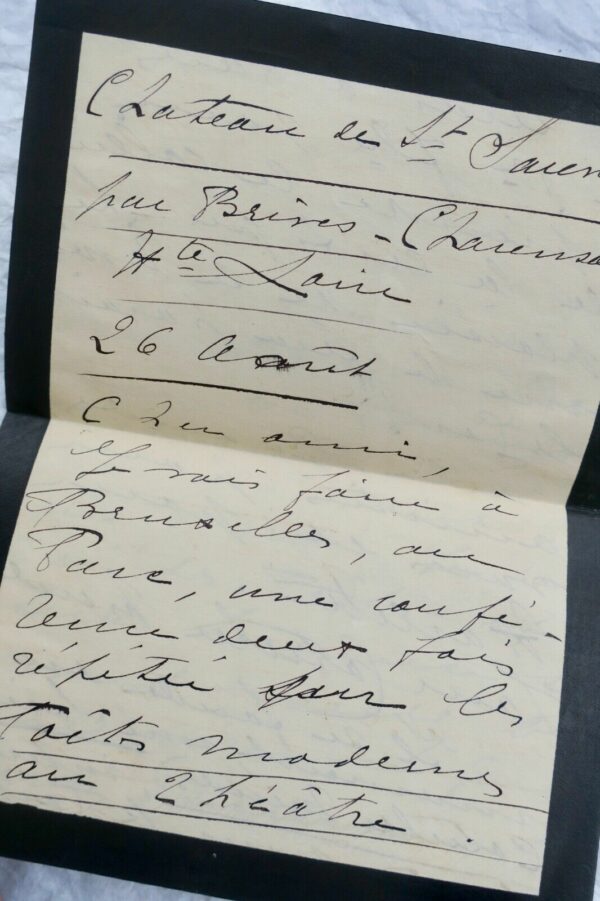 Chateau de St
par Brives-Charensa
Hte Loire
26 Août
Cher ami,
Je vais faire à
Bruxelles, au
Parc, une confé-
rence deux fois
répétée sur les
Poêtes modernes
au Théâtre.